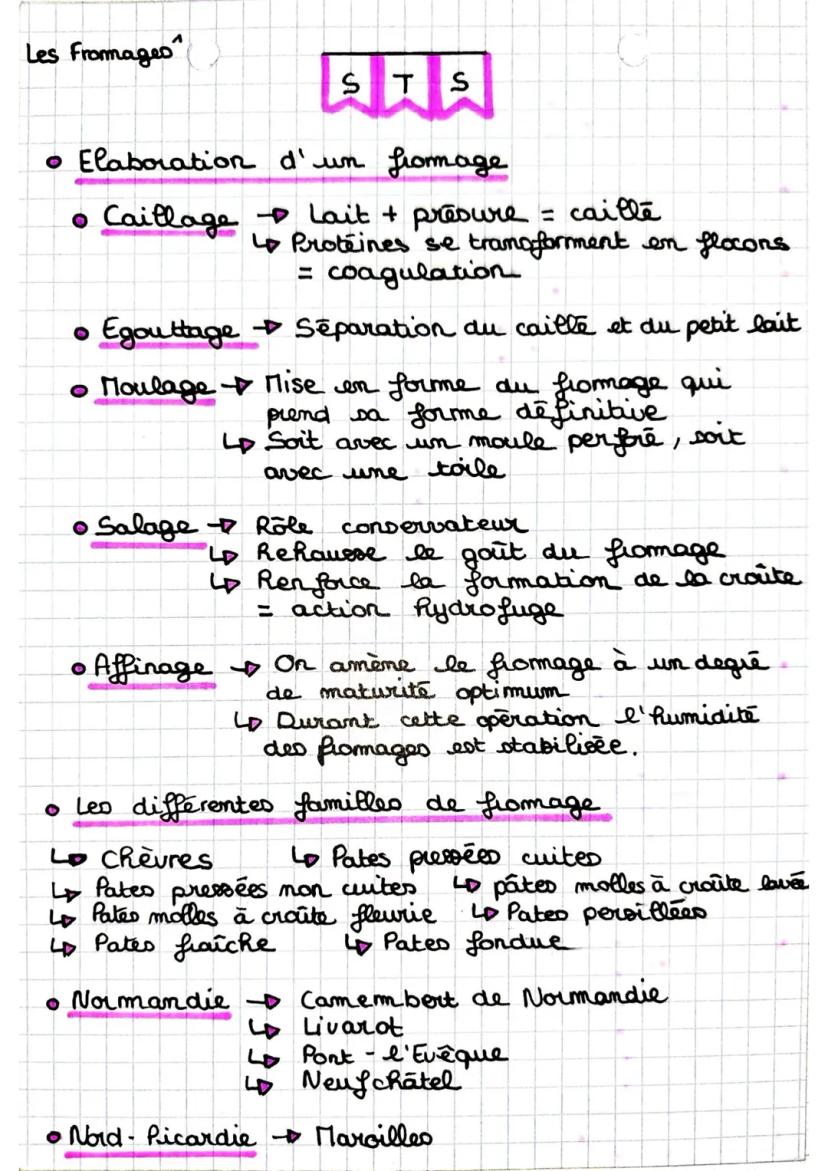 Les Fromages^
S T S
• Elaboration d'un fromage
• Caillage → Lait + présure = caillé
↳ Protéines se transforment en flocons
= coagulation
• Egouttage → Séparation du caillé et du petit lait
• Moulage → Mise en forme du fromage qui
prend sa forme définitive
↳ Soit avec un moule perforé, soit
avec une toile
• Salage → Rôle conservateur
↳ Rehausse le goût du fromage
↳ Renforce la formation de la croûte
= action hydrofuge
• Affinage → On amène le fromage à un degré
de maturité optimum
↳ Durant cette opération l'humidité
des fromages est stabilisée.
• Les différentes familles de fromage
↳ Chèvres ↳ Pates pressées cuites
↳ Pates pressées non cuites ↳ pâtes molles à croûte lavée
↳ Pates molles à croûte fleurie ↳ Pates persillées
↳ Pates fraîche ↳ Pates fondue
• Normandie → Camembert de Normandie
↳ Livarot
↳ Pont-l'Evêque
↳ Neufchâtel
• Nord-Picardie → Maroilles